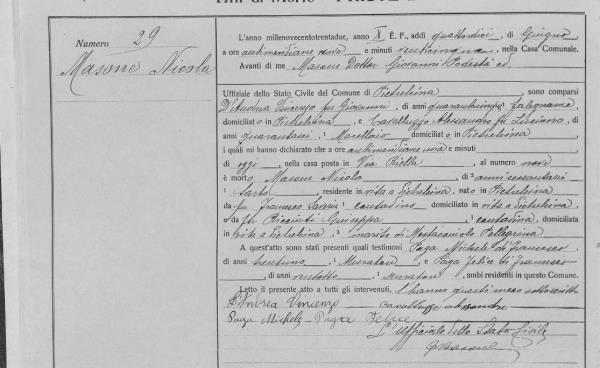 Numero 29
Masone Nicola
L'anno millenovecentotrentadue, anno X E. F., addì quattordici di Giugno
a ore antimeridiane nove e minuti venticinque, nella Casa Comunale.
Avanti di me Masone Dottor Giovanni Podestà ed
Uffiziale dello Stato Civile del Comune di Pietrelcina, sono comparsi
D'Andrea Vincenzo fu Giovanni, di anni quarantacinque, falegname
domiciliato in Pietrelcina e Cavalluzzo Alessandro fu Luciano, di
anni quarantasei, Macellaio domiciliato in Pietrelcina
i quali mi hanno dichiarato che a ore antimeridiane una e minuti
di oggi, nella casa posta in Via Riella al numero nove
è morto Masone Nicola, di anni sessantasei
Sarto, residente in vita a Pietrelcina, nato in Pietrelcina
da fu Francesco Saverio, contadino domiciliato in vita a Pietrelcina
e da fu Giuseppa, contadina, domiciliata
in vita a Pietrelcina, marito di Pellegrina
A quest'atto sono stati presenti quali testimoni Paga Michele di Francesco
di anni trentuno, Muratore, e Paga Felice di Francesco
, di anni ventotto, Muratore, ambi residenti in questo Comune.
Letto il presente atto a tutti gli intervenuti, l'hanno questi meco sottoscritto
D'Andrea Vincenzo Cavalluzzo Alessandro
Paga Michele - Paga Felice
L'Ufficiale dello Stato Civile